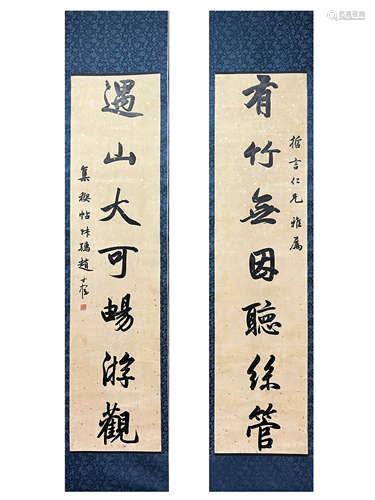 有竹無因聽絲管
哲言仁兄 雅属
遇山大可暢游觀
集禊帖
趙